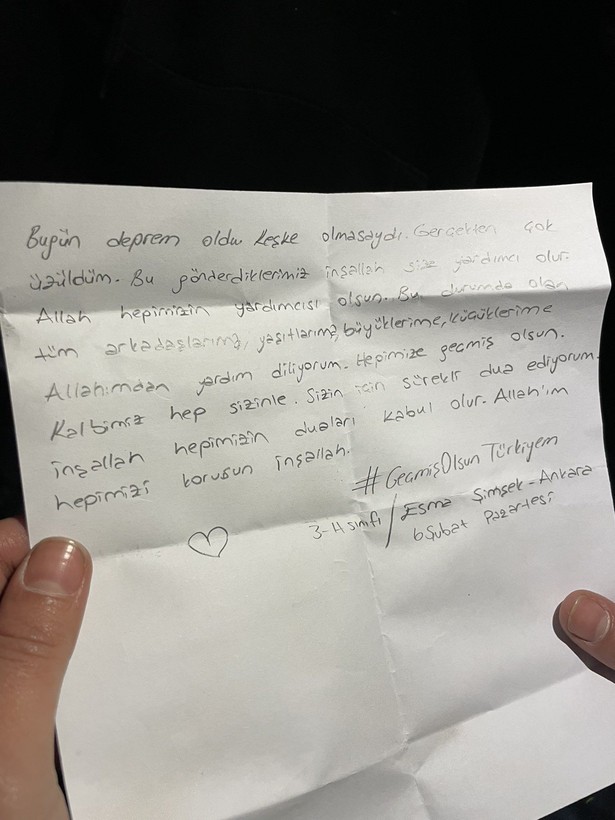 Bugün deprem oldu keşke olmasaydı. Gerçekten çok
üzüldüm. Bu gönderdiklerimiz inşallah size yardımcı olur.
Allah hepimizin yardımcısı olsun. Bu durumda olan
tüm arkadaşlarıma, yaşıtlarıma, büyüklerime, küçüklerime
Allahımdan yardım diliyorum. Hepimize geçmiş olsun.
Kalbimiz hep sizinle. Sizin için sürekli dua ediyorum.
inşallah hepimizin duaları kabul olur. Allah'ım
hepimizi korusun inşallah.
#GeçmişOlsun Türkiyem
3-H sınıfı / Esma Şimşek-Ankara
6 Şubat Pazartesi